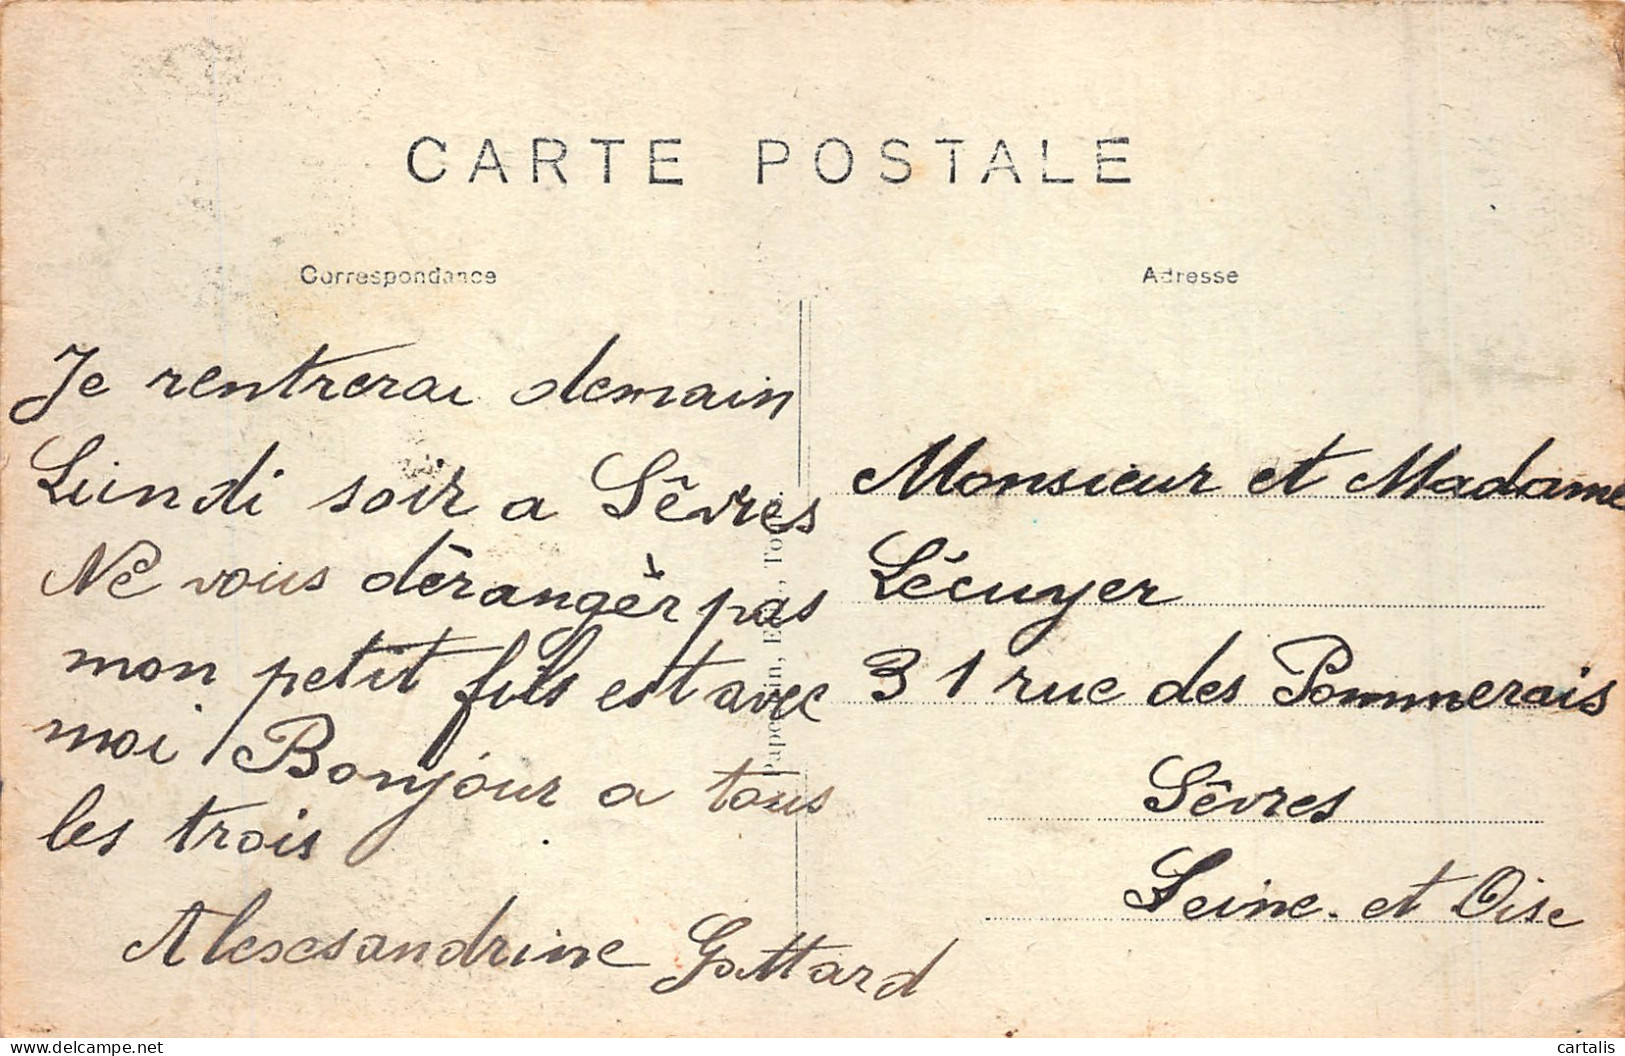 CARTE POSTALE
Correspondance
Je rentrerai demain
Lundi soir a Sêvres
Ne vous dérangèr pas
mon petit fils est avec
moi Bonjour a tous
les trois
Alexsandrine Gottard
Adresse
Monsieur et Madame
Lécuyer
31 rue des Pommerais
Sêvres
Seine et Oise
delcampe.net
cartalis